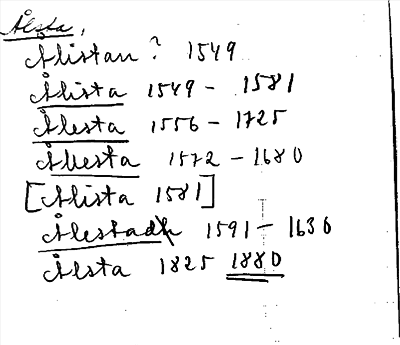 Ålsta,
Ålistan? 1549
Ålista 1549 - 1581
Ålesta 1556 - 1725
Ållesta 1572 - 1680
[Ålista 1581]
Ålestad 1591 - 1630
Ålsta 1825 1880